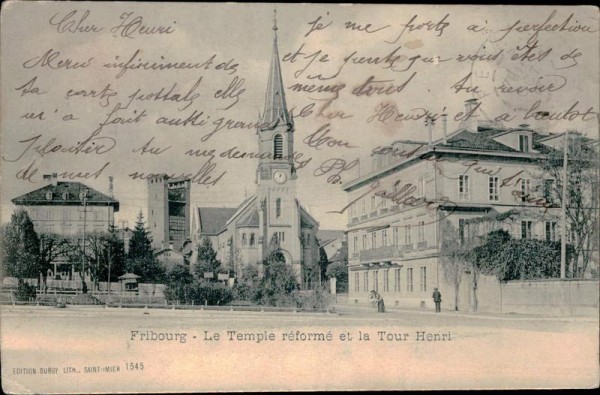 Cher Henri
Merci infiniment de
ta carte postale elle
m'a fait aussi grand
plaisir Tu me demandes
de mes nouvelles
je me porte à perfection
et je pense que vous êtes de
même tous. Au revoir
Cher Henri et à bientôt
Ton
Fribourg - Le Temple réformé et la Tour Henri
EDITION BURGY LITH., SAINT-IMIER 1545